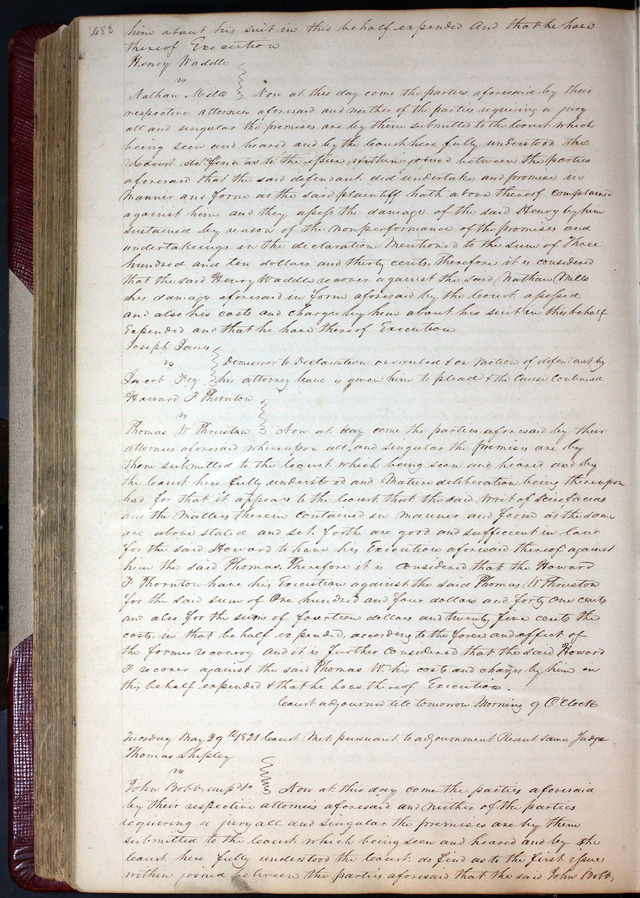 483
him about his suit in this behalf expended And that he have
thereof Execution
Henry Waddle
vs
Nathan Mills Now at this day come the parties aforesaid by their
respective attornies aforesaid and neither of the parties requiring a jury
all and singular the premises are by them submitted to the Court which
being seen and heard and by the Court here fully understood the
Court do find as to the issue within joined between the parties
aforesaid that the said defendant did undertake and promise in
Manner and form as the said plaintiff hath above thereof complained
against him and they assess the damage of the said Henry by him
sustained by reason of the nonperformance of the promises and
undertakeings in the declaration Mentioned to the sum of Three
hundred and ten dollars and thirty cents, therefore it is considered
that the said Henry Waddle recover against the said Nathan Mills
his damage aforesaid in form aforesaid by the Court assessed
and also his costs and charges by him about his suit in this behalf
Expended and that he have thereof Execution
Joseph Janis
vs
Jacob Fry Demurrer to Declaration overruled & on Motion of defendant by
his attorney leave is given him to plead & the cause Continued
Howard F Thornton
vs
Thomas W Thruston Now at day come the parties aforesaid by their
attornies aforesaid whereupon all and singular the premises are by
them submitted to the Court which being seen and heard and by
the Court here fully understood and Mature deliberation being thereupon
had for that it appears to the Court that the said Writ of Scirefacias
and the Matters therein contained in manner and form as the same
are above stated and set forth are good and sufficient in law
for the said Howard to have his Execution aforesaid thereof against
him the said Thomas. Therefore it is Considered that the Howard
F Thornton have his Execution against the said Thomas W Thruston
for the said sum of One hundred and four dollars and forty one cents
and also for the sum of fourteen dollars and twenty five cents the
costs in that behalf expended, according to the force and effect of
the former recovery and it is further considered that the said Howard
F recover against the said Thomas W. his costs and charges by him in
this behalf expended & that he have thereof Execution.
Court adjourned till tomorrow Morning 9 O'Clock
Tuesday May 29th 1821 Court Met pursuant to adjournment Present same Judge
Thomas Shipley
vs
John Bobb Now at this day come the parties aforesaid
by their respective attornies aforesaid and neither of the parties
requiring a jury all and singular the premises are by them
submitted to the Court which being seen and heard and by the
Court here fully understood the Court do find as to the first issue
within joined between the parties aforesaid that the said John Bobb,